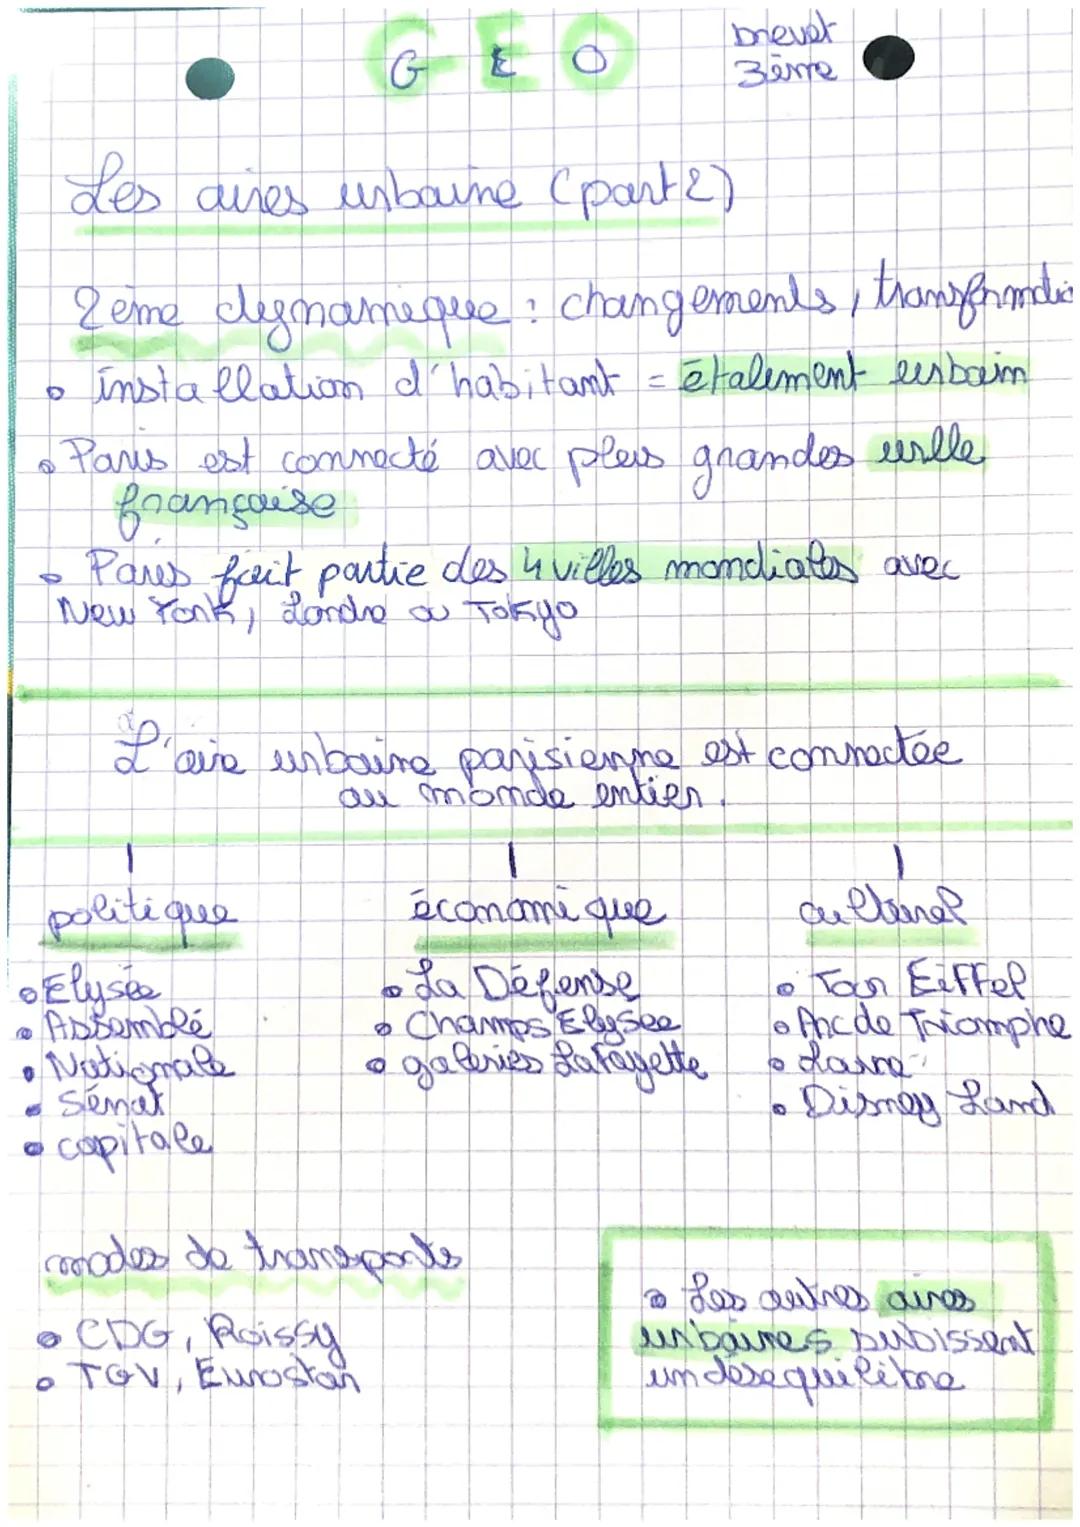 GEO
brevet
3ème
Les aires urbaine (part 2)
2ème dynamique : changements, transformatio
• installation d'habitant = étalement urbain
• Paris est connecté avec plus grandes ville
française
• Paris fait partie des 4 villes mondiales avec
New York, Londre ou Tokyo
L'aire urbaine parisienne est connectée
au monde entier.
politique
• Elysée
• Assemblé
• Nationale
• Sénat
• capitale
économique
• La Défense
• Champs Elysee
• galeries Lafayette
culturel
• Tour Eiffel
• Arc de Triomphe
• Disney Land
modes de transports
• CDG, Roissy
• TGV, Eurostar
• Les autres aires
urbaines subissent
un déséquilibre